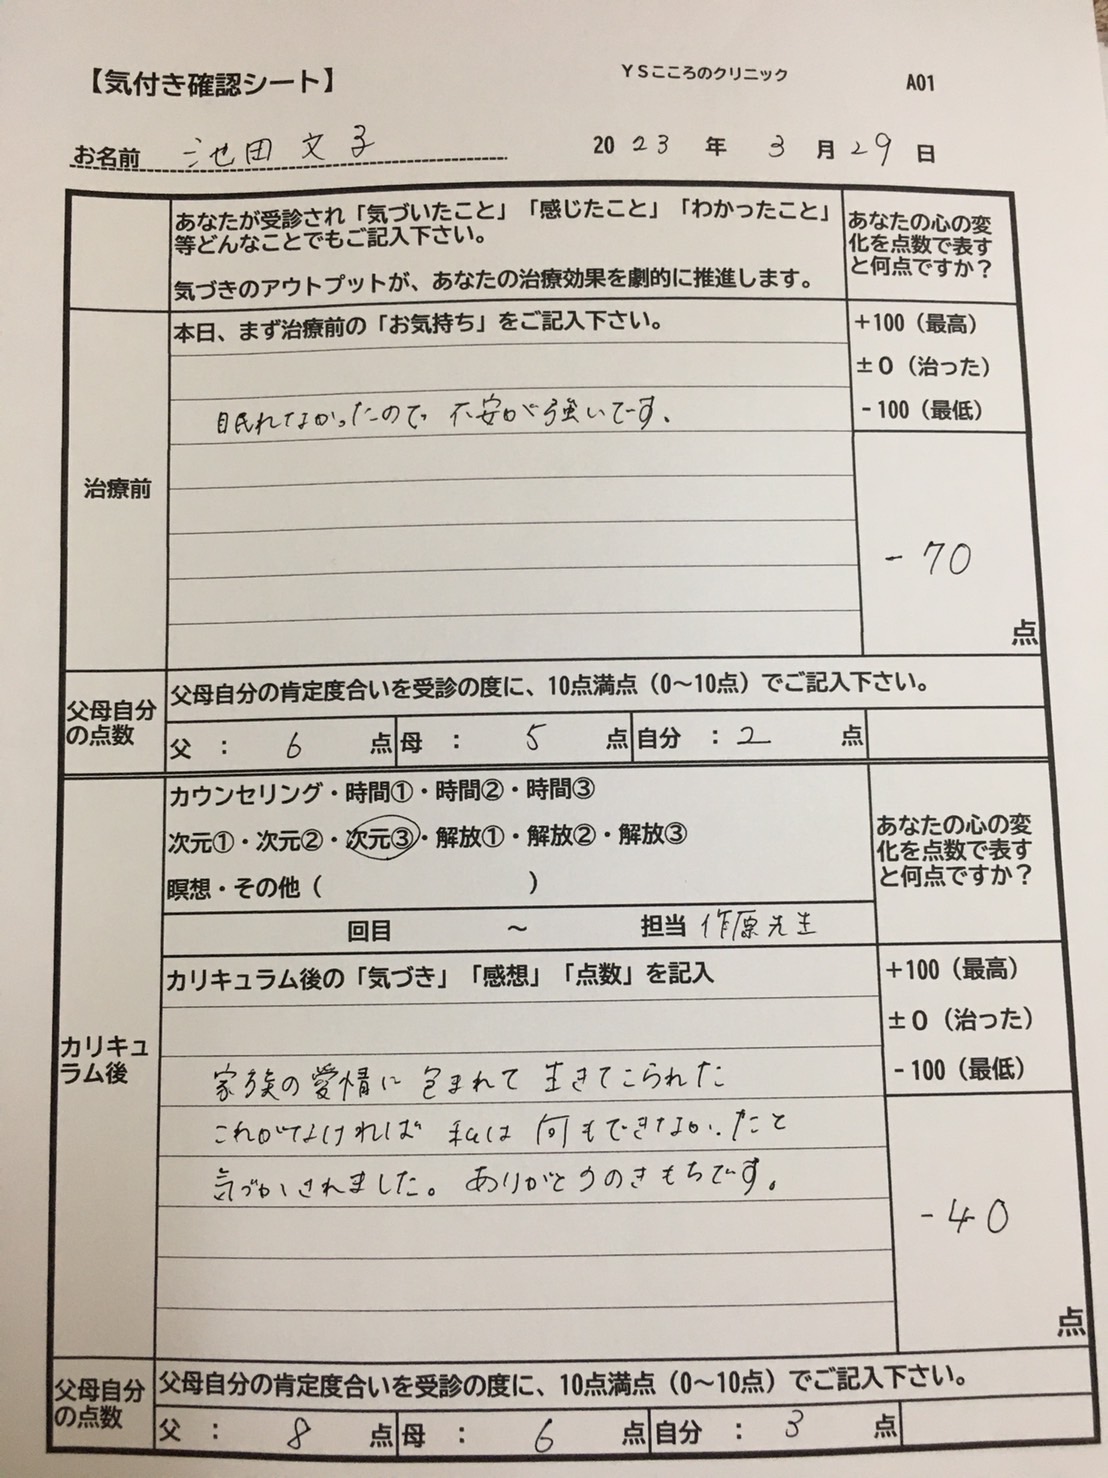 【気付き確認シート】
YSこころのクリニック
A01
お名前 池田文子
2023年3月29日
あなたが受診され「気づいたこと」「感じたこと」「わかったこと」
等どんなことでもご記入下さい。
気づきのアウトプットが、あなたの治療効果を劇的に推進します。
あなたの心の変
化を点数で表す
と何点ですか？
治療前
本日、まず治療前の「お気持ち」をご記入下さい。
眠れてなかったので 不安が強いです。
+100（最高）
±0（治った）
-100（最低）
-70
点
父母自分
の点数
父母自分の肯定度合いを受診の度に、10点満点（0～10点）でご記入下さい。
父 ： 6 点 母 ： 5 点 自分 ： 2 点
カリキュ
ラム後
カウンセリング・時間①・時間②・時間③
次元①・次元②・次元③・解放①・解放②・解放③
瞑想・その他（ ）
回目 ～ 担当 作原先生
あなたの心の変
化を点数で表す
と何点ですか？
カリキュラム後の「気づき」「感想」「点数」を記入
家族の愛情に包まれて生きてこられた
これがなければ 私は何もできなかったと
気づかされました。ありがとうのきもちです。
+100（最高）
±0（治った）
-100（最低）
-40
点
父母自分
の点数
父母自分の肯定度合いを受診の度に、10点満点（0～10点）でご記入下さい。
父 ： 8 点 母 ： 6 点 自分 ： 3 点